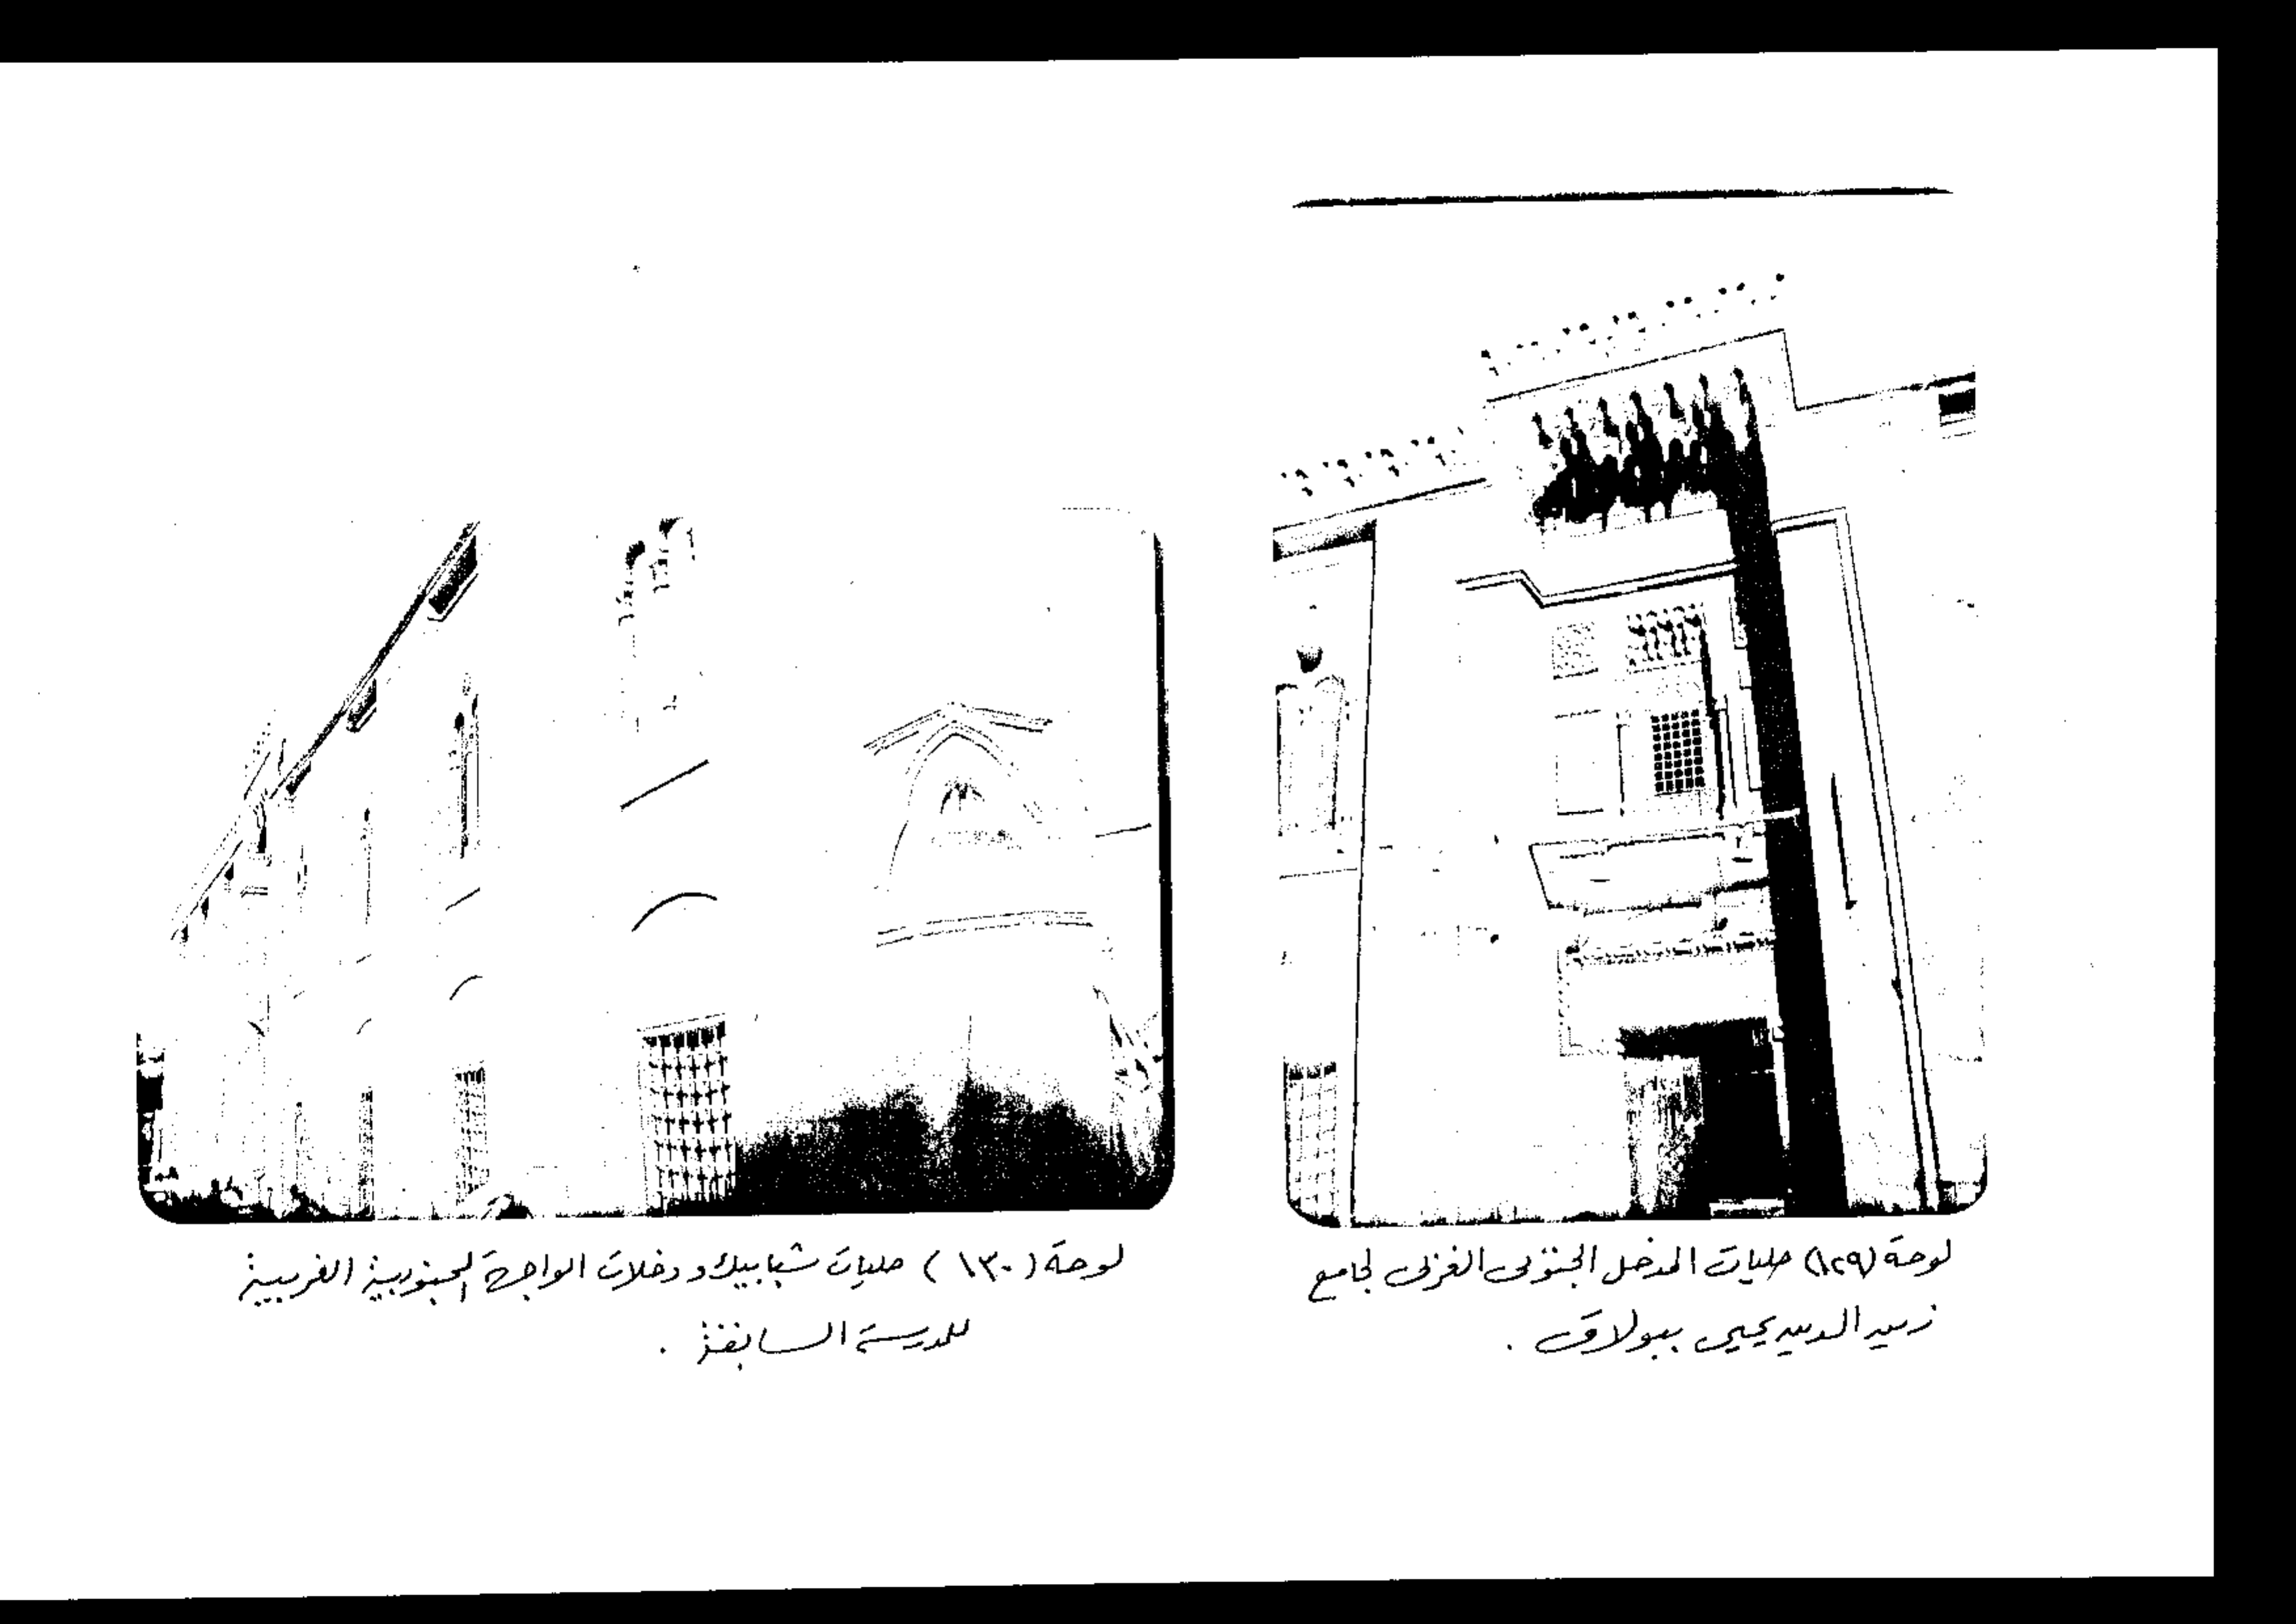 لوحة (١٢٩) حليات المدخل الجنوبى الغربى لجامع
زين الدين يحيى ببولاق .
لوحة (١٣٠) حليات شبابيك و دخلات الواجهة الجنوبية الغربية
للمدرسة السابقة .